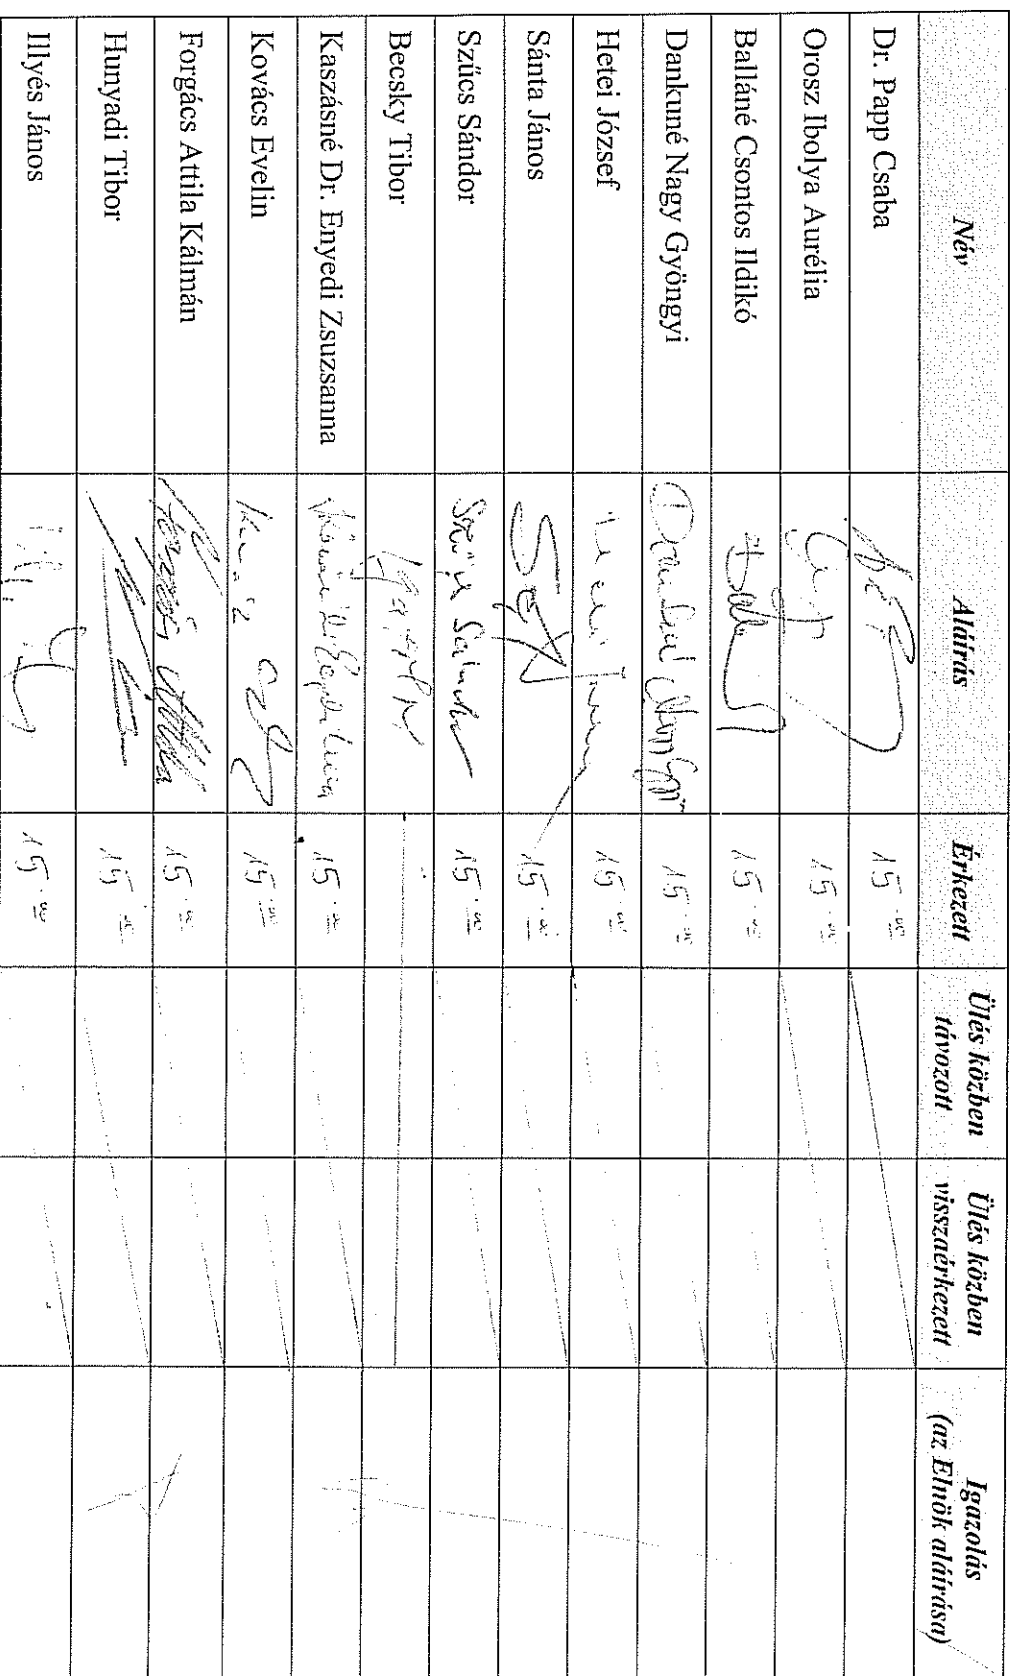 Név Aláírás Érkezett Ülés közben távozott Ülés közben visszaérkezett Igazolás (az Elnök aláírása)
Dr. Papp Csaba 15.00
Orosz Ibolya Aurélia 15.00
Balláné Csontos Ildikó 15.00
Dankuné Nagy Gyöngyi 15.00
Hetei József 15.00
Sánta János 15.00
Szűcs Sándor Szűcs Sándor 15.00
Becsky Tibor
Kaszásné Dr. Enyedi Zsuzsanna 15.00
Kovács Evelin 15.00
Forgács Attila Kálmán Forgács Attila 15.00
Hunyadi Tibor 15.00
Illyés János 15.00